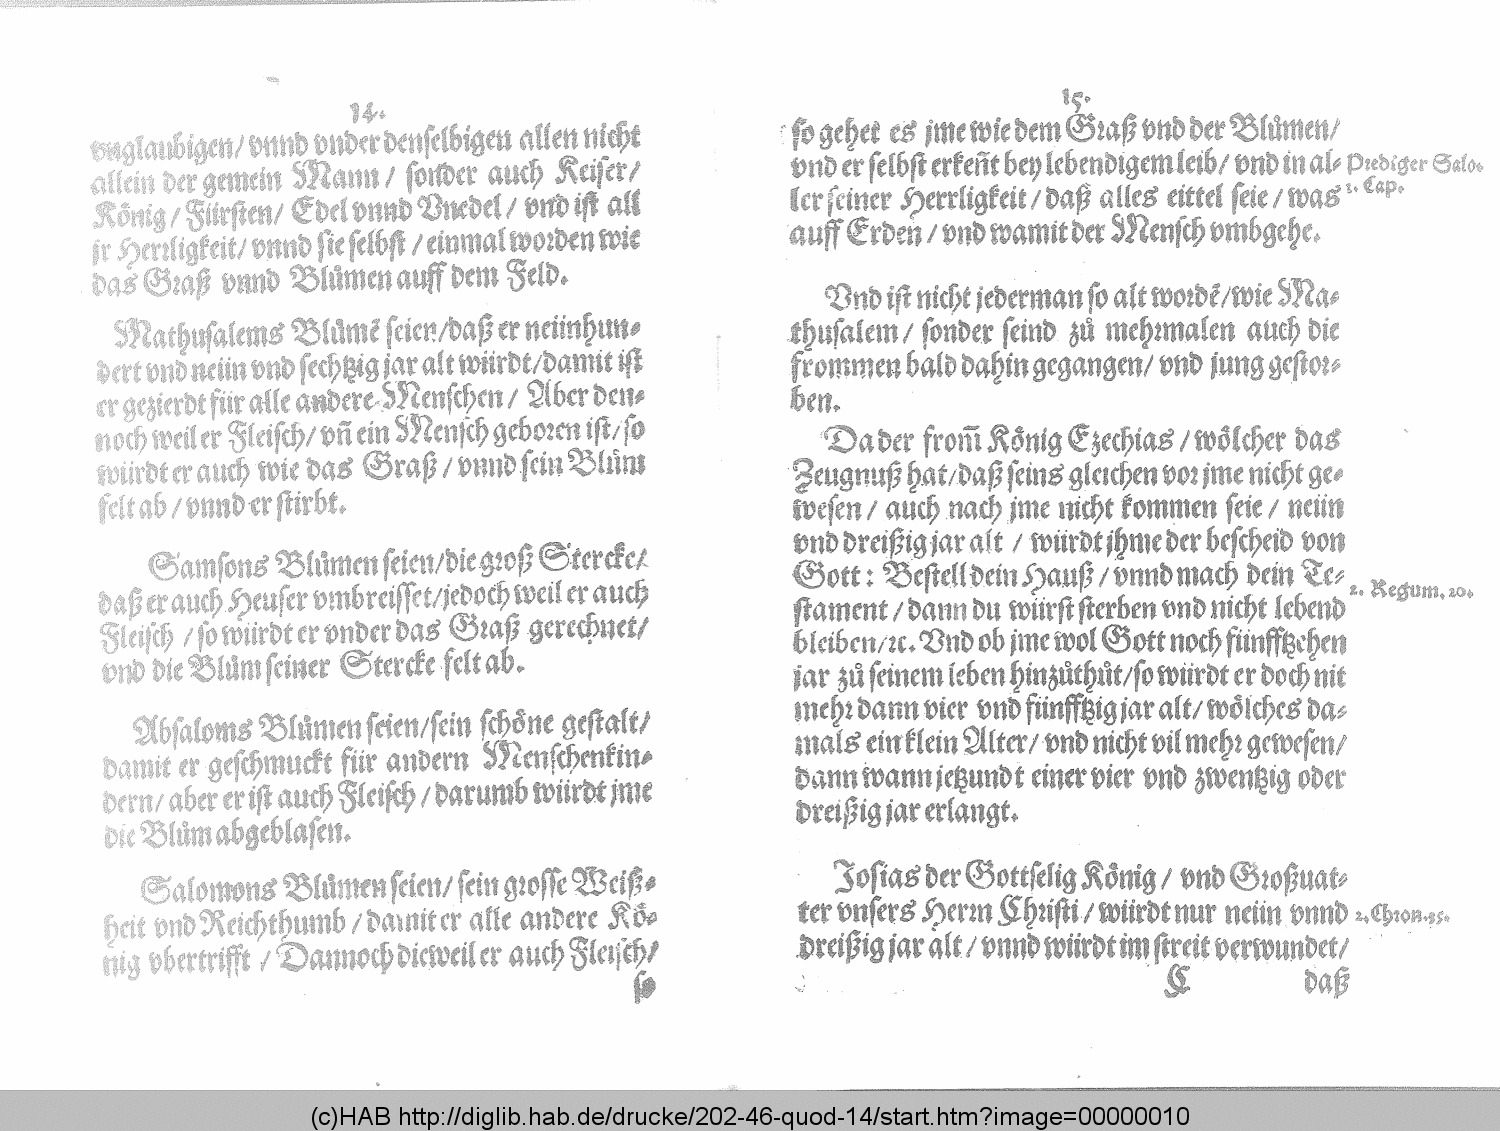 14.
vnglaubigen/ vnnd vnder denſelbigen allen nicht
allein der gemein Mann / ſonder auch Keiſer/
König / Fürſten/ Edel vnnd Vnedel / vnd iſt all
jr Herrligkeit/ vnnd ſie ſelbſt / einmal worden wie
das Graß vnnd Blůmen auff dem Feld.
Mathuſalems Blůmẽ ſeien/daß er neünhun⸗
dert vnd neün vnd ſechtzig jar alt würdt/damit iſt
er gezierdt für alle andere Menſchen / Aber den⸗
noch weil er Fleiſch/ vñ ein Menſch geboren iſt/ ſo
würdt er auch wie das Graß / vnnd ſein Blům
felt ab / vnnd er ſtirbt.
Samſons Blůmen ſeien/die groß Stercke/
daß er auch Heuſer vmbreiſſet/jedoch weil er auch
Fleiſch / ſo würdt er vnder das Graß gerechnet/
vnd die Blům ſeiner Stercke felt ab.
Abſaloms Blůmen ſeien/ſein ſchöne geſtalt/
damit er geſchmuckt für andern Menſchenkin⸗
dern/ aber er iſt auch Fleiſch / darumb würdt jme
die Blům abgeblaſen.
Salomons Blůmen ſeien/ ſein groſſe Weiß⸗
heit vnd Reichthumb / damit er alle andere Kö⸗
nig vbertrifft / Dannoch dieweil er auch Fleiſch/
ſo
15.
ſo gehet es jme wie dem Graß vnd der Blůmen/
vnd er ſelbſt erkeñt bey lebendigem leib/ vnd in al⸗
ler ſeiner Herrligkeit / daß alles eittel ſeie / was
auff Erden / vnd wamit der Menſch vmbgehe.
Prediger Salo.
1. Cap.
Vnd iſt nicht jederman ſo alt wordẽ/wie Ma⸗
thuſalem / ſonder ſeind zů mehrmalen auch die
frommen bald dahin gegangen/ vnd jung geſtor⸗
ben.
Da der from̃ König Ezechias / wölcher das
Zeugnuß hat/daß ſeins gleichen vor jme nicht ge⸗
weſen / auch nach jme nicht kommen ſeie / neün
vnd dreißig jar alt / würdt jhme der beſcheid von
Gott : Beſtell dein Hauß / vnnd mach dein Te⸗
ſtament / dann du würſt ſterben vnd nicht lebend
bleiben/ꝛc. Vnd ob jme wol Gott noch fünfftzehen
jar zů ſeinem leben hinzůthůt/ſo würdt er doch nit
mehr dann vier vnd fünfftzig jar alt/ wölches da⸗
mals ein klein Alter/ vnd nicht vil mehr geweſen/
dann wann jetzundt einer vier vnd zwentzig oder
dreißig jar erlangt.
2. Regum. 20.
Joſias der Gottſelig König / vnd Großuat⸗
ter vnſers Herrn Chriſti / würdt nur neün vnnd
dreißig jar alt / vnnd würdt im ſtreit verwundet/
2. Chron. 35.
C daß
(c)HAB http://diglib.hab.de/drucke/202-46-quod-14/start.htm?image=00000010